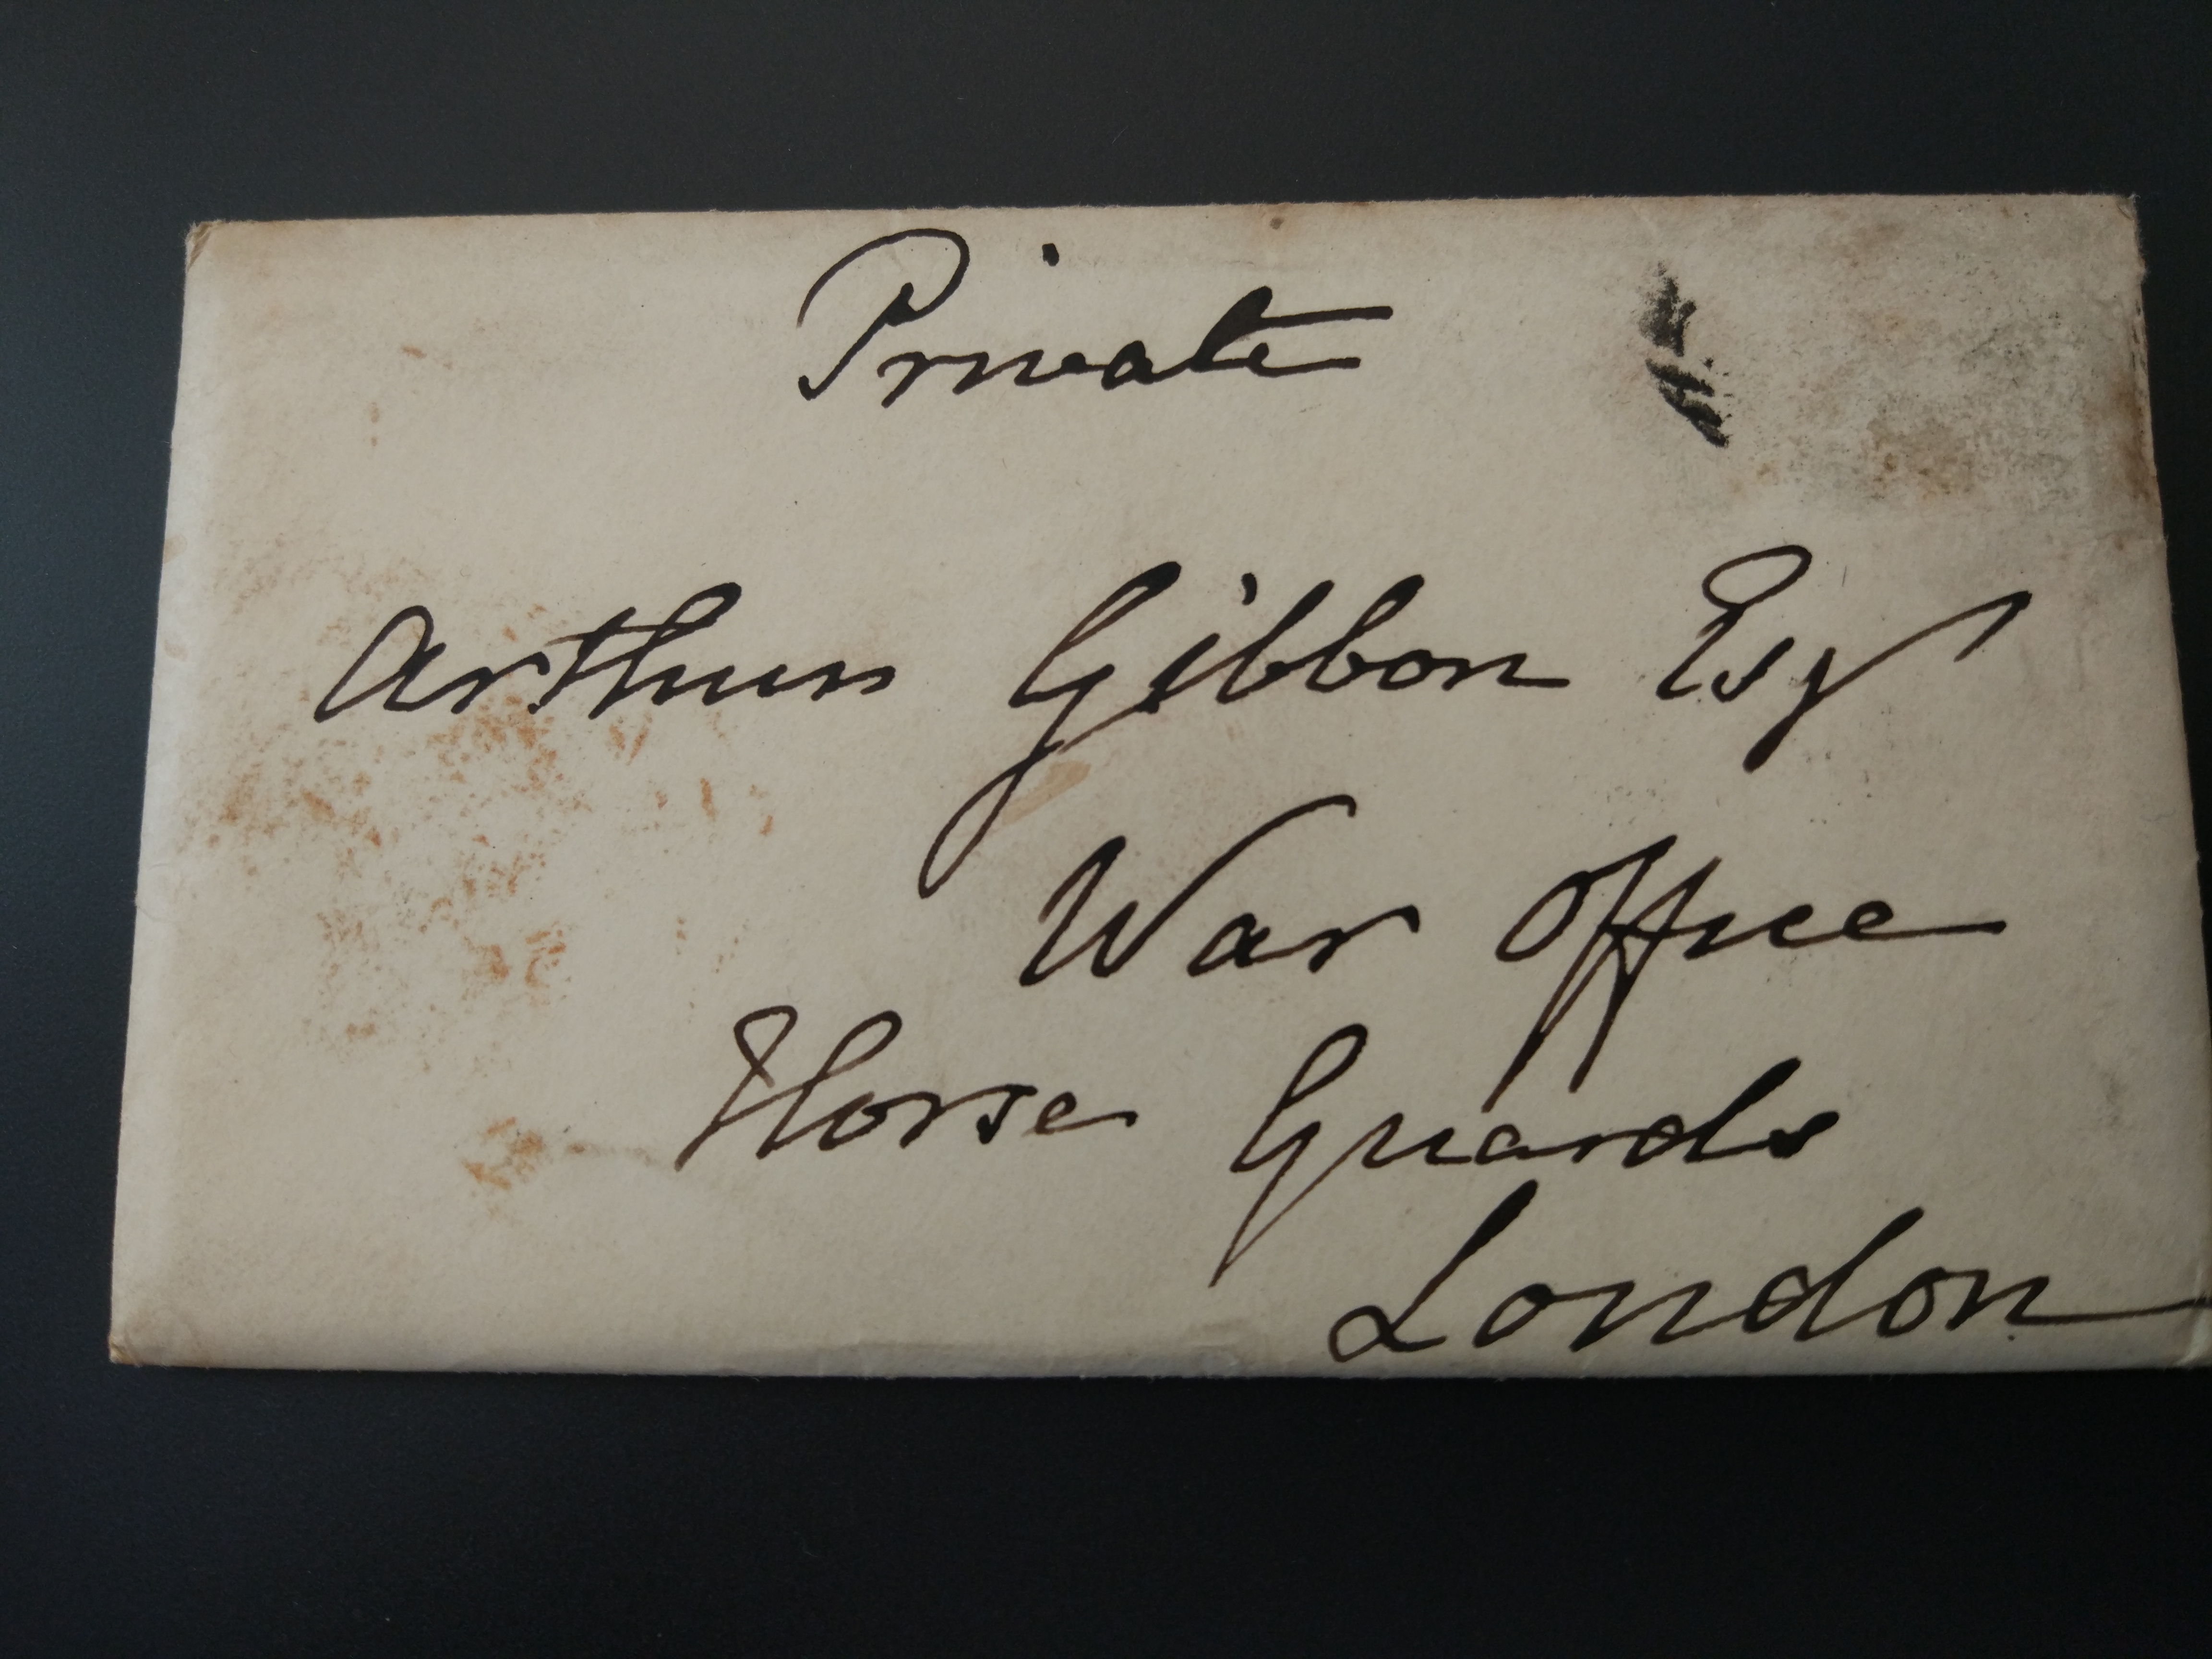 Private
Arthur Gibbon Esqr
War Office
Horse Guards
London